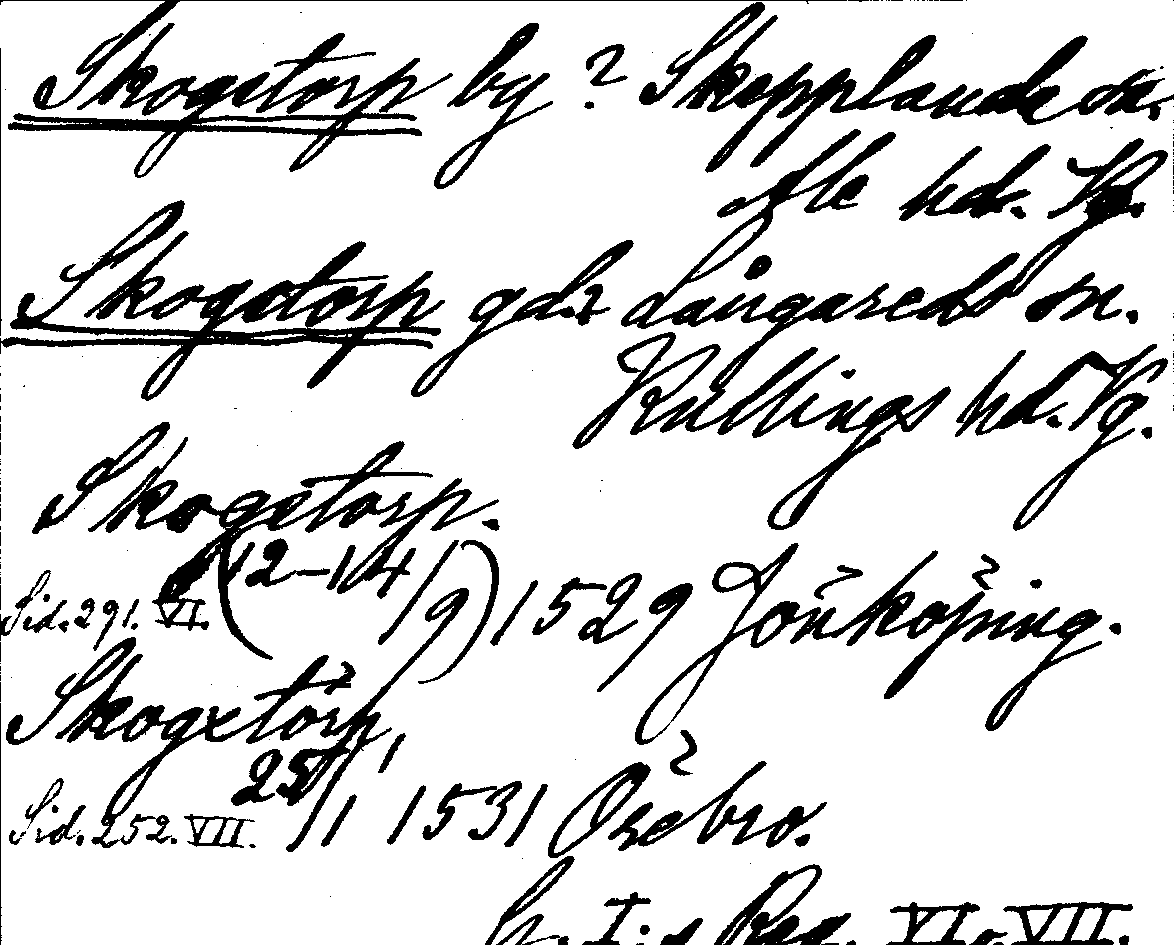 Skogstorp by? Skepplanda sn.
Ale hd. Vg.
Skogstorp gd? Långareds sn.
Kullings hd. Vg.
Skogstorp.
Sid. 291. VI. (12-14/9) 1529 Jönköping.
Skogxtörp,
Sid. 252. VII. 25/1 1531 Örebro.
G. I:s Reg. VI o. VII.